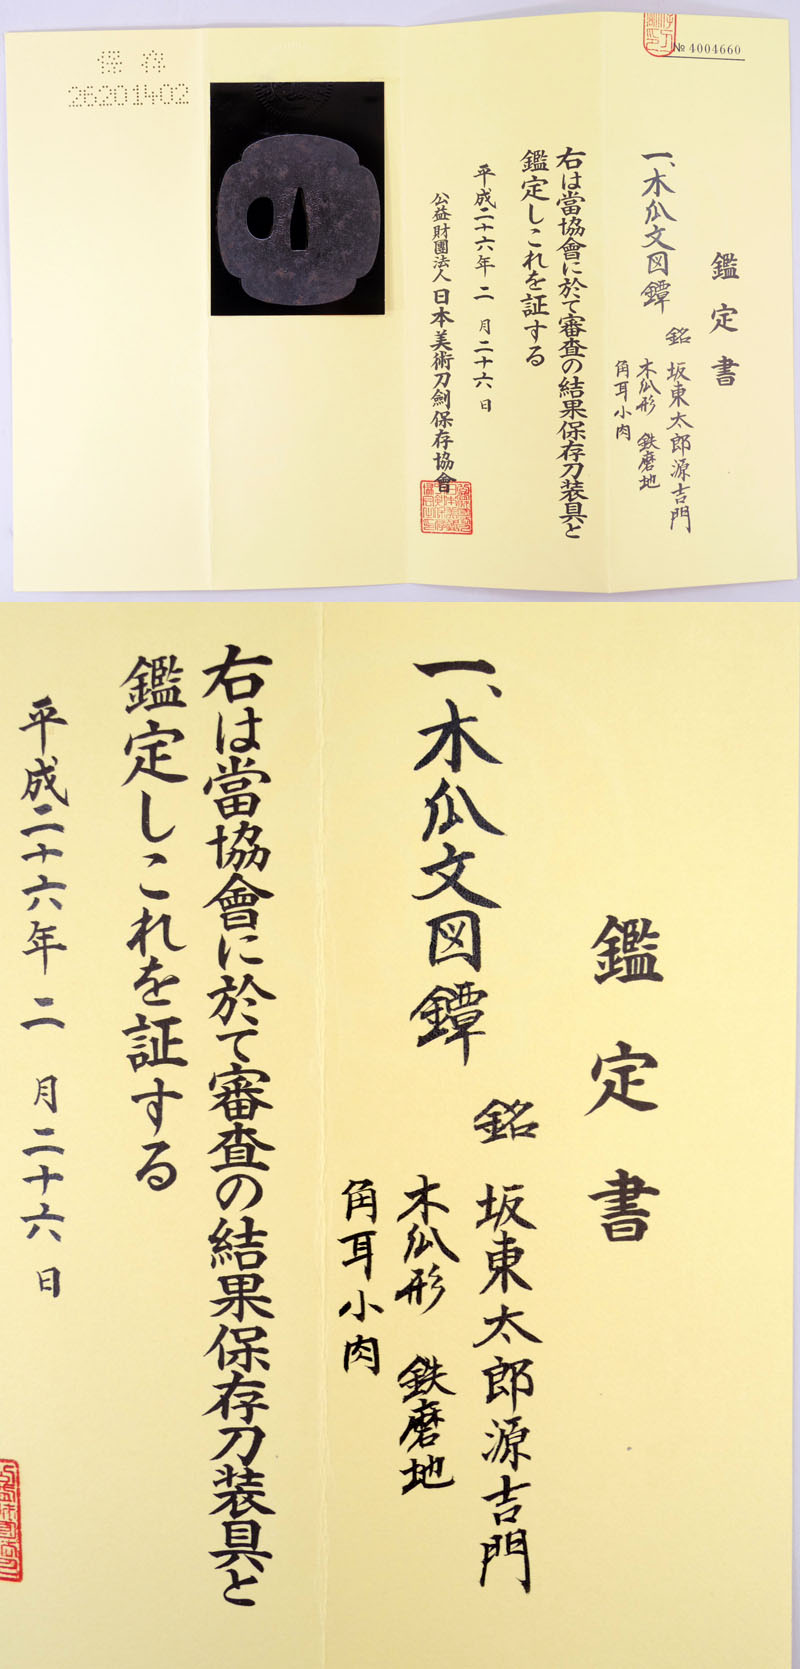 № 4004660
鑑定書
一、木瓜文図鐔
銘 坂東太郎源吉門
木瓜形 鉄磨地
角耳小肉
右は當協會に於て審査の結果保存刀装具と
鑑定しこれを証する
平成二十六年二月二十六日
公益財團法人日本美術刀劍保存協會
保存
26201402
鑑定書
一、木瓜文図鐔
銘 坂東太郎源吉門
木瓜形 鉄磨地
角耳小肉
右は當協會に於て審査の結果保存刀装具と
鑑定しこれを証する
平成二十六年二月二十六日